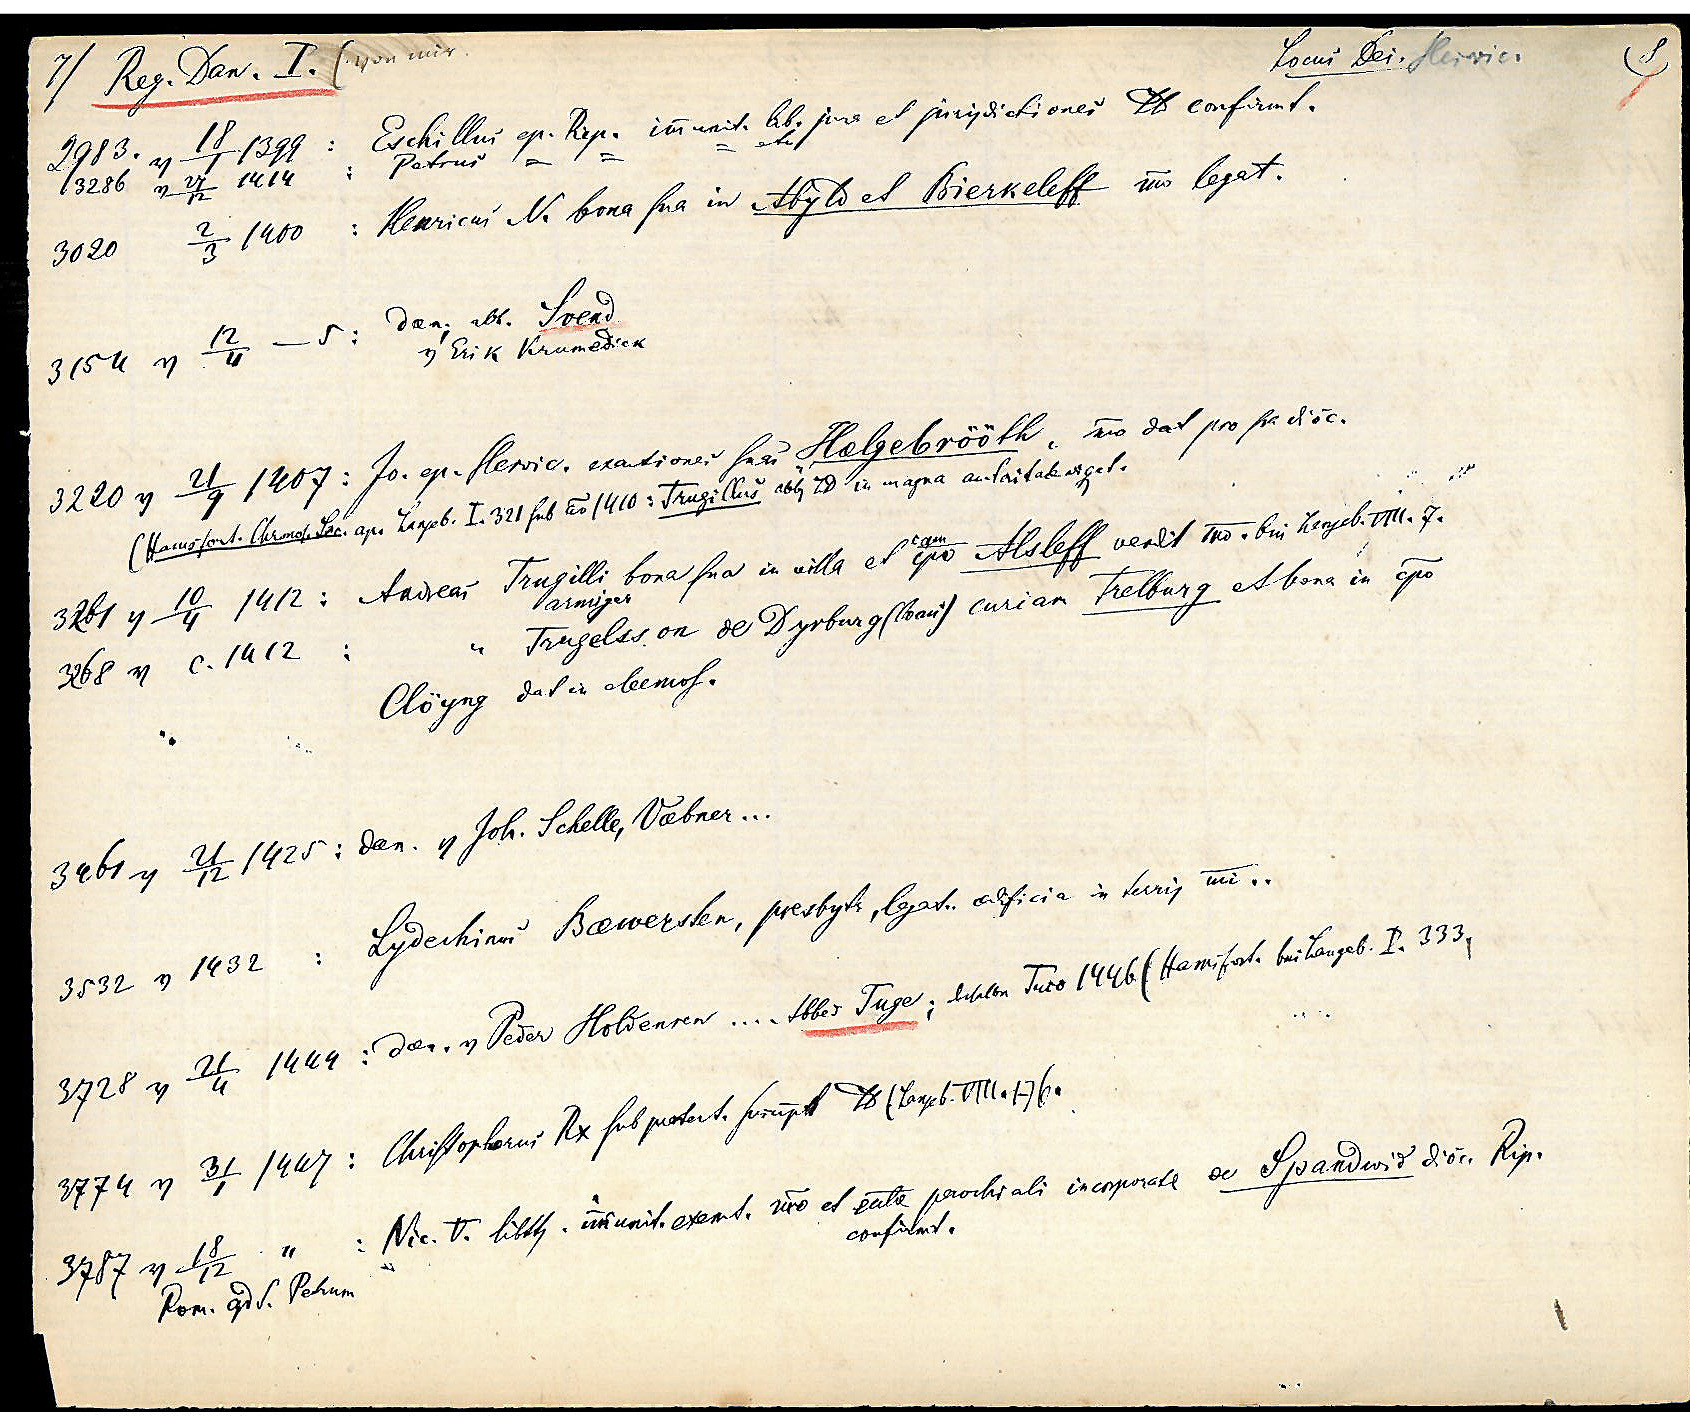 7/ Reg. Dan. I. (von mir. Locus Dei. Slesvic. (8
2983. v 18/1 1399 : Eschillus ep. Rip. im̄unit. lib. jura et jurisdictiones confirmt.
3286 v 1414 : Petrus = = = etc
3020 2/3 1400 : Henricus N. bona sua in Abyld et Bierkeleff m̄o legat.
3154 v 12/4 — 5 : Dan. abb. Svend
v Erik Krumedick
3220 v 21/9 1407 : Jo. ep. Slesvic. exactiones suas Hælgebrööth, m̄o dat pro sa dióc.
(Hamsfort. Chronol. Sec. ap. Langeb. I. 321 sub a͞o 1410 : Trugillus abb LD in magna autoritate viget.
3261 v 10/4 1412 : Andreas Trugilli bona sua in villa et campo Alsleff vendit m̄o. bei Langeb. VIII. 7.
armiger
3268 v c. 1412 : " Trugelss. on de Dyrburg curiam Trelburg et bona in c̄po
Clöyng dat in elemos.
3461 v 21/12 1425 : dan. v Joh. Schelle, Væbner ...
3532 v 1432 : Lydechinus Bæwersten, presbytr, legat. ædificia in terris m̄i ..
3728 v 21/4 1444 : Dan. v Peder Holdensen .... Abbed Tuge; Tuvo 1446 (Hamsfort. bei Langeb. I. 333,
3774 v 31/1 1447 : Christophorus Rx sub protect. (Langeb. VIII.
3787 v 18/12 " : Nic. V. libtt. im̄unit. exemt. m̄o et parochiali incorporate de Spandwid dióc. Rip.
confirmt.
Rom. ap. S. Petrum